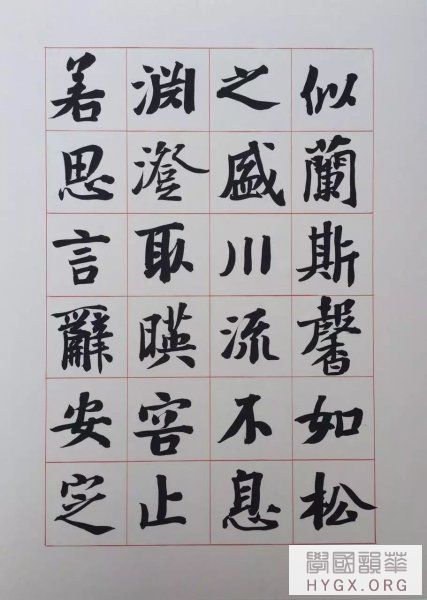 似蘭斯馨如松
之盛川流不息
淵澄取暎容止
若思言辭安定
華韻國學
HYGX.ORG